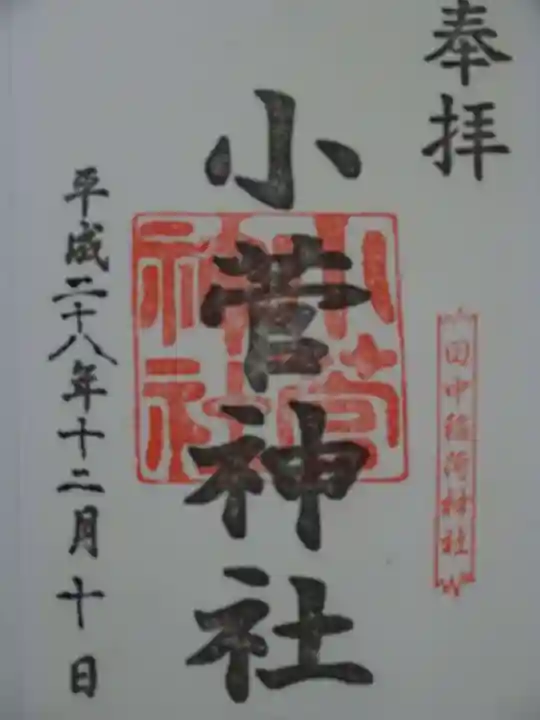 奉拝
田中稲荷神社
小菅神社
小菅
神社
平成二十八年十二月十日